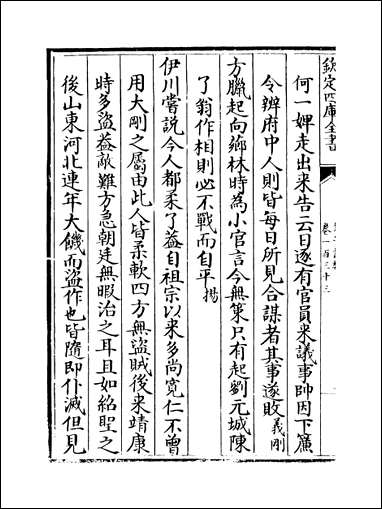 欽定四庫全書
卷一百三十三
何一婢走出来告云日逐有官員来議事帥因下簾
令辨府中人則皆每日所見合謀者其事遂敗義剛
方臘起向薌林時為小官言今無策只有起劉元城陳
了翁作相則必不戰而自平揚
伊川嘗說今人都柔了葢自祖宗以来多尚寛仁不曽
用大剛之屬由此人皆柔軟四方無盜賊後来靖康
時多盜葢敵難方急朝廷無暇治之耳且如紹聖之
後山東河北連年大饑而盜作也皆隨即仆滅但見